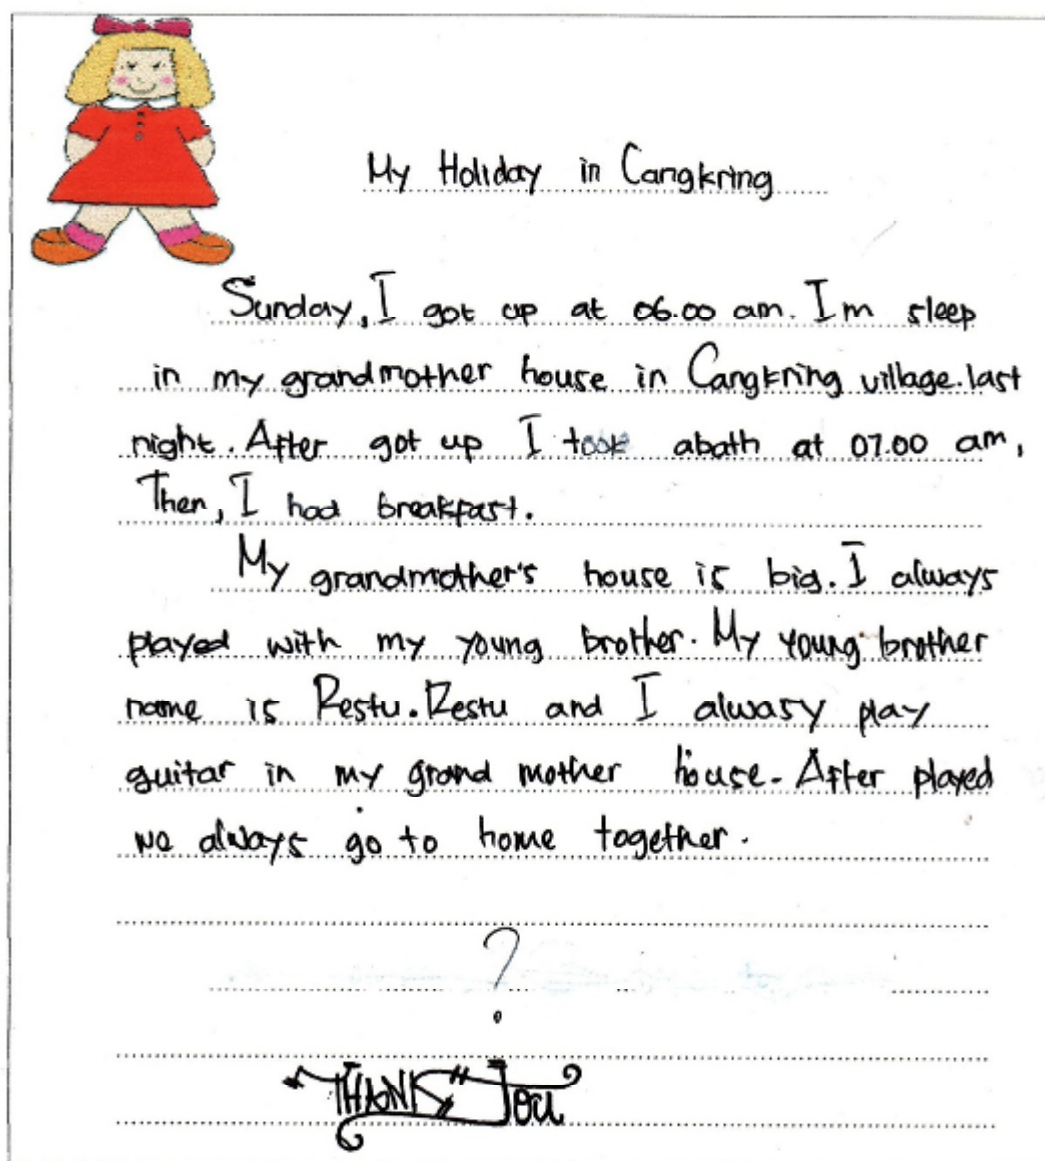 My Holiday in Cangkring
Sunday, I got up at 06.00 am. Im sleep
in my grandmother house in Cangkring village. last
night. After got up I took abath at 07.00 am,
Then, I had breakfast.
My grandmother's house is big. I always
played with my young brother. My young brother
name is Restu. Restu and I alwasy play
guitar in my grand mother house. After played
we always go to home together.
?
"THANK" You